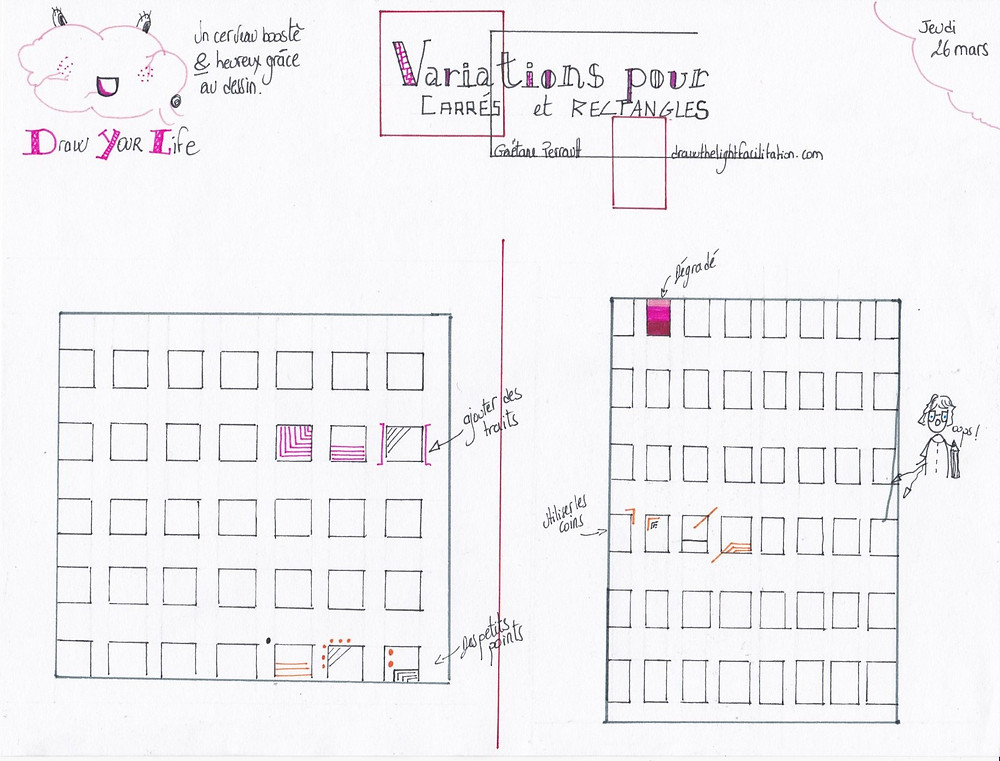 Un cerveau boosté
& heureux grâce
au dessin.
Draw Your Life
Variations pour
CARRÉS et RECTANGLES
Gaëtane Perrault
drawthelightfacilitation.com
Jeudi
26 mars
ajouter des
traits
Des petits
points
Dégradé
Utiliser les
coins
oops!